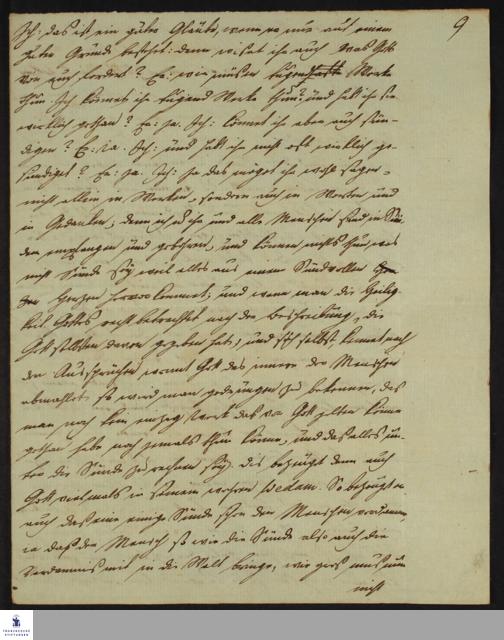 9
Ich: das ist ein guter Glaube, wenn er nur auf einem
guten Grunde bestehet: denn wisset ihr auch was Gott
von euch fordert? Er: wir müssen Tugend Werke
thun. Ich: könnet ihr Tugend Werke thun? und habt ihr sie
würklich gethan? Er: Ja. Ich: könnet ihr aber auch sün-
digen? Er: Ja. Ich: und habt ihr nicht oft würklich ge-
sündiget? Er: Ja. Ich: Ja das möget ihr wohl sagen,
nicht allein in Werken, sondern auch in Worten und
in Gedanken, denn ich u. ihr und alle Menschen sind in Sün-
den empfangen und gebohren, und können nichts thun was
nicht Sünde sey weil alles aus einem Sündvollen
Herzen kommet; und wenn man die Heilig-
keit Gottes recht betrachtet nach der Beschreibung, die
Gott selbsten davon gegeben hat, und sich selbst kennet nach
den Aussprüchen womit Gott das innere des Menschen
abmahlet, so wird man gedrungen zu bekennen, daß
man noch kein einzig Werk das vor Gott gelten könne
gethan habe noch jemals thun könne, und daß alles un-
ter die Sünde zu rechnen sey. dis bezeugt denn auch
Gott vielmals in seinem wahren Vedam. So bezeugt er
auch daß eine einige Sünde schon den Menschen verdamme,
ja daß der Mensch so wie die Sünde also auch die
Verdamnis mit in die Welt bringe, wie groß muß nun
nicht
FRANCKESCHE
STIFTUNGEN